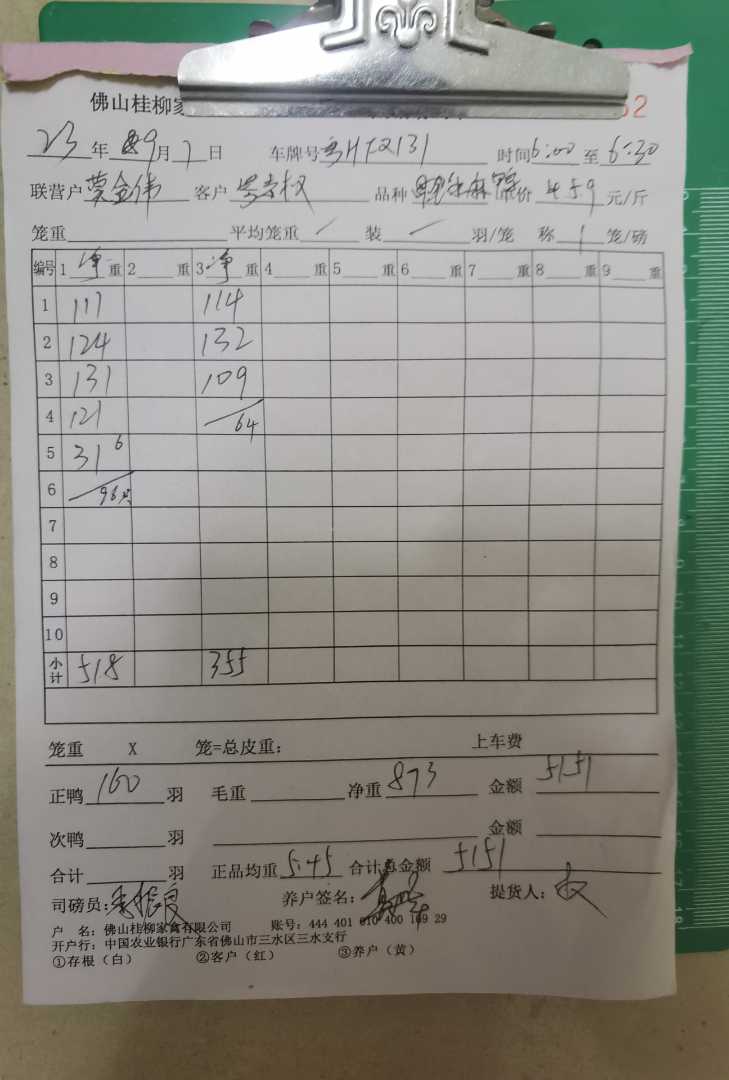 佛山桂柳家 52
23年 9月7日 车牌号 HT2131 时间6:00至6:30
联营户 莫金伟 客户 品种 单价 4.59 元/斤
笼重 平均笼重 / 装 / 羽/笼 称 1 笼/磅
编号 1 净重 2 重 3 净重 4 重 5 重 6 重 7 重 8 重 9 重
1 117 114
2 124 132
3 131 109
4 121 64
5 31 6
6 96只
7
8
9
10
小计 518 355
笼重 X 笼=总皮重: 上车费
正鸭 160 羽 毛重 净重 873 金额 5151
次鸭 羽 金额
合计 羽 正品均重 5.45 合计总金额 5151
司磅员: 养户签名: 提货人: 权
户 名: 佛山桂柳家禽有限公司 账号: 444 401 010 400 149 29
开户行: 中国农业银行广东省佛山市三水区三水支行
①存根(白) ②客户(红) ③养户(黄)